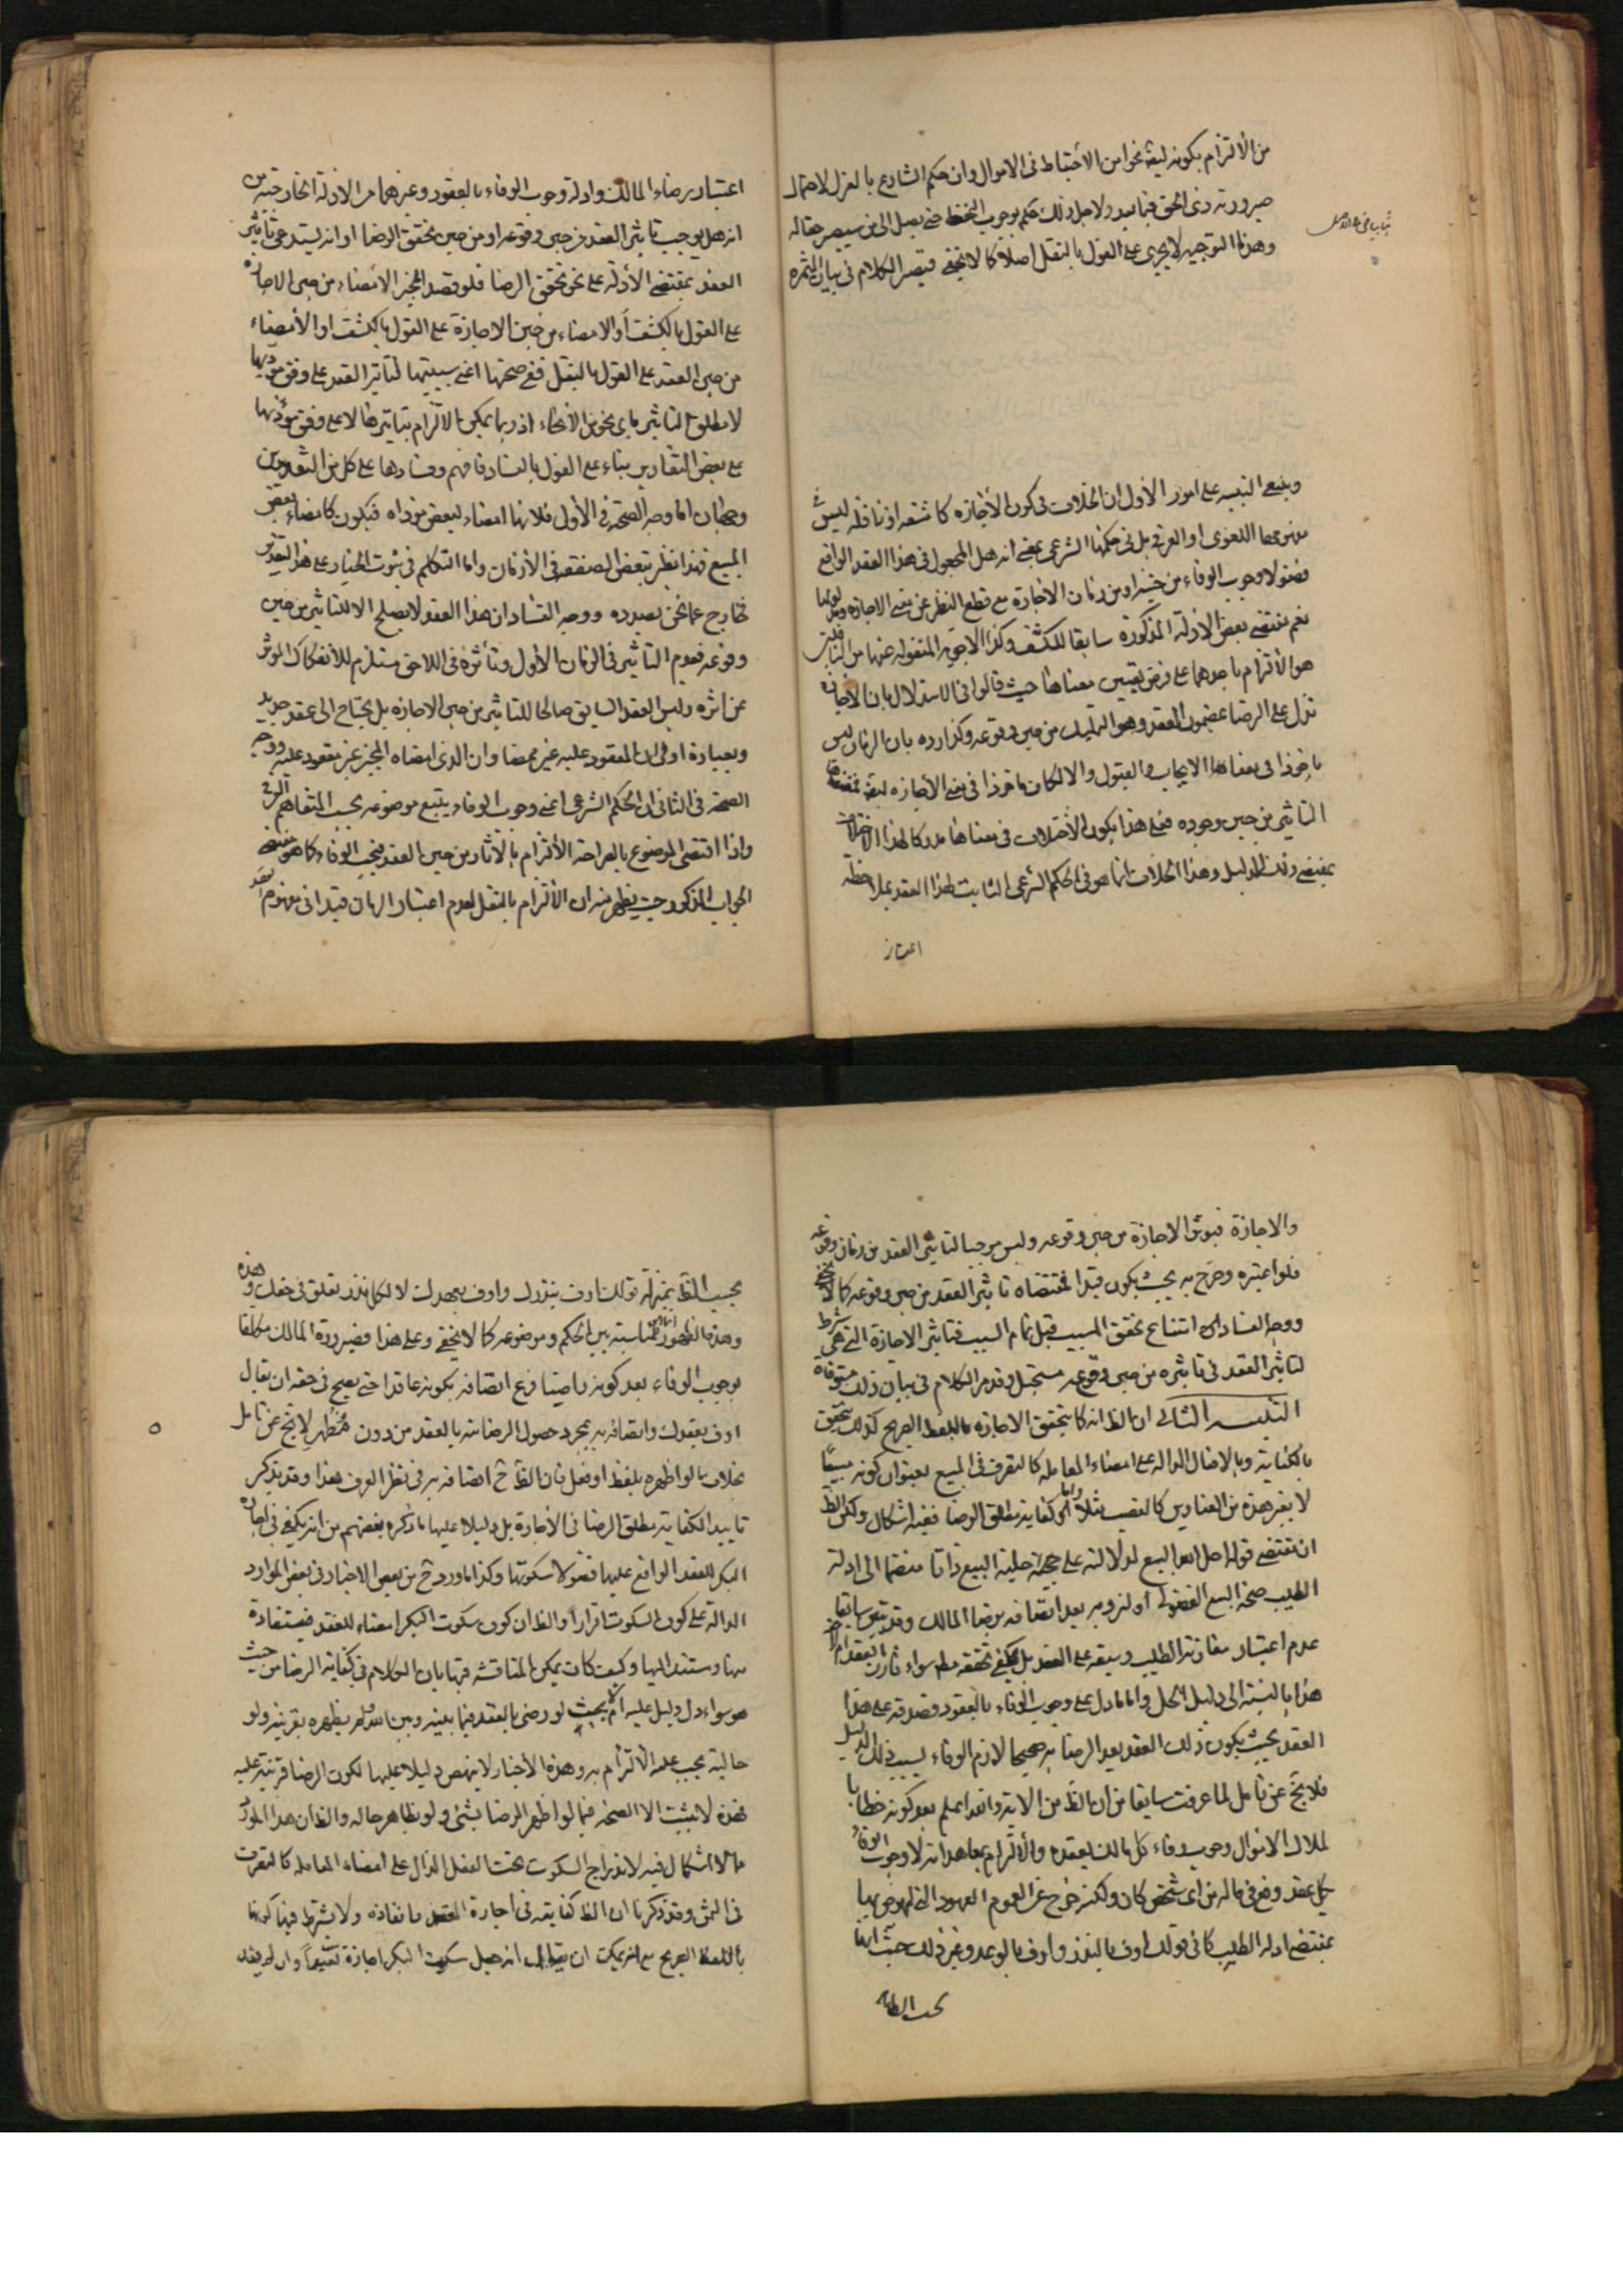 من الألتزام بكونه ليقة نحوا من الاحتياط فى الاموال وان حكم الشارع بالعزل لاحتمال
صيرورته ذى الحق فيما بعد ولاجل ذلك حكم بوجوب التحفظ حتى يصل الى من سيصير حقا له
وهذا التوجيه لا يجرى على القول بالنقل اصلا كما لا يخفى فيتصر الكلام فى بيان الثمره
وينبغى التنبيه على امور الأول ان الخلاف فى كون الأجازه كاشفه او ناقله ليس
مفهومها اللغوى او العرفى بل فى حكمها الشرعى بمعنى انه هل المجعول فى هذا العقد الواقع
فضولا وجوب الوفاء من حينه او من زمان الاجازة مع قطع النظر عن معنى الاجازه ومدلولها
نعم مقتضى بعض الادلة المذكورة سابقا للكشف وكذا الاجوبه المنقوله عنها من
هو الألتزام باحدهما على فرض تعيين معناها حيث قالوا فى الاستدلال بان الأجازه
تدل على الرضا بمضمون العقد وهو التمليك من حين وقوعه وكذا رده بان الزمان ليس
ماخوذا فى معناها الايجاب والقبول والا لكان ماخوذا فى معنى الأجازه
التاثير من حين وجوده فعلى هذا يكون الأختلاف فى معناها مدركا لهذا الاختلاف
بمقتضى ذلك الدليل وهذا الخلاف انما هو فى الحكم الشرعى الثابت لهذا العقد بملاحظة
اعتبار
اعتبار رضاء المالك وادلة وجوب الوفاء بالعقود وغيرهما من الادلة الخارجية من
انه هل يوجب تاثير العقد من حين وقوعه او من حين تحقق الرضا او انه يستدعى تاثير
العقد بمقتضى الأدلة على نحو تحقق الرضا فلو قصد المجيز الامضاء من حين الاجازه
على القول بالكشف أو الامضاء من حين الاجازة على القول بالكشف او الأمضاء
من حين العقد على القول بالنقل ففى صحتها اعنى سببيتها لتاثير العقد على وفق مؤديها
لا مطلق التاثير باى نحو من الأنحاء اذ ربما يمكن الالتزام بتاثيرها لا على وفق مؤديها
على بعض التقادير بناء على القول بالفساد فافهم وفسادها على كل من التقديرين
وجهان اما وجه الصحة فى الأول فلانها امضاء لبعض مؤداه فيكون كامضاء بعض
المبيع فهذا نظير تبعض الصفقه فى الأزمان واما التكلم فى ثبوت الخيار على هذا التقدير
خارج عما نحن بصدده ووجه الفساد ان هذا العقد لا يصلح الا للتاثير من حين
وقوعه فعدم التاثير فى الزمان الأول وتأثره فى اللاحق مستلزم للأنفكاك المؤثر
عن اثره وليس العقد السابق صالحا للتاثير من حين الاجازه بل يحتاج الى عقد جديد
وبعبارة اوفى ان المعقود عليه غير ممضا وان الذى امضاه المجيز غير معقود عليه ووجه
الصحة فى الثانى ان الحكم الشرعى اعنى وجوب الوفاء يتبع موضوعه بحسب المتفاهم العرفى
واذا اقتضى الموضوع بالصراحة الألتزام بالآثار من حين العقد فيجب الوفاء كما هو مقتضى
الجواب المذكور حيث يظهر منه ان الألتزام بالنقل لعدم اعتبار الزمان قيدا فى مفهوم العقد
والاجازة فيؤثر الاجازة من حين وقوعه وليس موجبا لتاثير العقد من زمان وقوعه
فلو اعتبره وصرح به بحيث يكون قيدا لمقتضاه تاثير العقد من حين وقوعه كما لا يخفى
ووجه الفساد ان امتناع تحقق المسبب قبل تمام السبب فتاثير الاجازة التى هى شرط
لتاثير العقد فى تاثيره من حين وقوعه مستحيل وقد مر الكلام فى بيان ذلك مستوفاة
التنبيه الثانى ان الظ انه كما يتحقق الاجازه باللفظ الصريح كذلك يتحقق
بالكناية وبالافعال الداله على امضاء المعامله كالتصرف فى المبيع بعنوان كونه مبيعا
لا بغير هذه من العناوين كالغصب مثلا واما كفاية مطلق الرضا ففيه اشكال ولكن الظ
ان مقتضى قوله احل الله البيع لدلالته على جهة حلية البيع ذاتا منضما الى ادلة
الطيب صحة البيع الفضولى او لزومه بعد انضافه برضا المالك وقد تبين سابقا
عدم اعتبار مقارنة الطيب وسبقه على العقد بل يكفى تحققه مط سواء قارن العقد ام لا
هذا بالنسبة الى دليل الحل واما ما دل على وجوب الوفاء بالعقود فصدقه على هذا
العقد بحيث يكون ذلك العقد بعد الرضا به صحيحا لازم الوفاء بسبب ذلك الدليل
فلا يخ عن تامل لما عرفت سابقا من ان الظ من الاية والله اعلم بعد كونه خطابا
لملاك الاموال وجوب وفاء كل مالك بعقده والألتزام بمعاهداته لا وجوب الوفاء
بكل عقد وقع فى ماله من اى شخص كان ولكنه خرج عن العموم العهود التى لم يرض بها
بمقتضى ادلة الطيب كما فى قولك اوف بالنذر واوف بالوعد وغير ذلك حيث انها
بحسب الظاهر
بحسب الظ بمنزلة قولك اوف بنذرك واوف بعهدك لا لكل نذر تعلق فى حقك وهذه
وهذه الظهور انما من مناسبته بين الحكم وموضوعه كما لا يخفى وعلى هذا فصيرورة المالك مكلفا
بوجوب الوفاء بعد كونه راضيا فرع اتصافه بكونه عاقدا حتى يصح فى حقه ان يقال
اوف بعقدك واتصافه به بمجرد حصول الرضا منه بالعقد من دون مُظهر لا يخ عن تامل
بخلاف ما لو اظهره بلفظ او فعل فان الظ ح اتصافه به فى نظر العرف هذا وقد يذكر
تاييد الكفاية مطلق الرضا فى الأجازة بل دليلا عليها ما ذكره بعضهم من انه يكفى فى اجازه
البكر للعقد الواقع عليها فضولا سكوتها وكذا ما ورد ح من بعض الاخبار فى بعض الموارد
الدالة على كون السكوت اقرارا والظ ان كون سكوت البكر امضاء للعقد فيستفادة
منها ومستند اليها وكيف كان يمكن المناقشه فيها بان الكلام فى كفاية الرضا من حيث
هو سواء دل دليل عليه ام لا بحيث لو رضى بالعقد فيما بينه وبين الله ولم يظهره بقرينه ولو
حالية يجب عليه الألتزام به وهذه الأخبار لا ينهض دليلا عليها لكون الرضا قرينة عليه
فهذه لا يثبت الا الصحة فيما لو اظهر الرضا بشئ ولو بظاهر حاله والظ ان هذا المورد
مما لا اشكال فيه لاندراج السكوت تحت الفعل الدال على امضاء المعامله كالتصرف
فى الثمن وقد ذكرنا ان الظ كفايته فى اجازة العقد بانفاذه ولا يشترط فيها كونها
باللفظ الصريح مع انه يمكن ان يقال انه جعل سكوت البكر اجازة تعبدا وان لم يفد